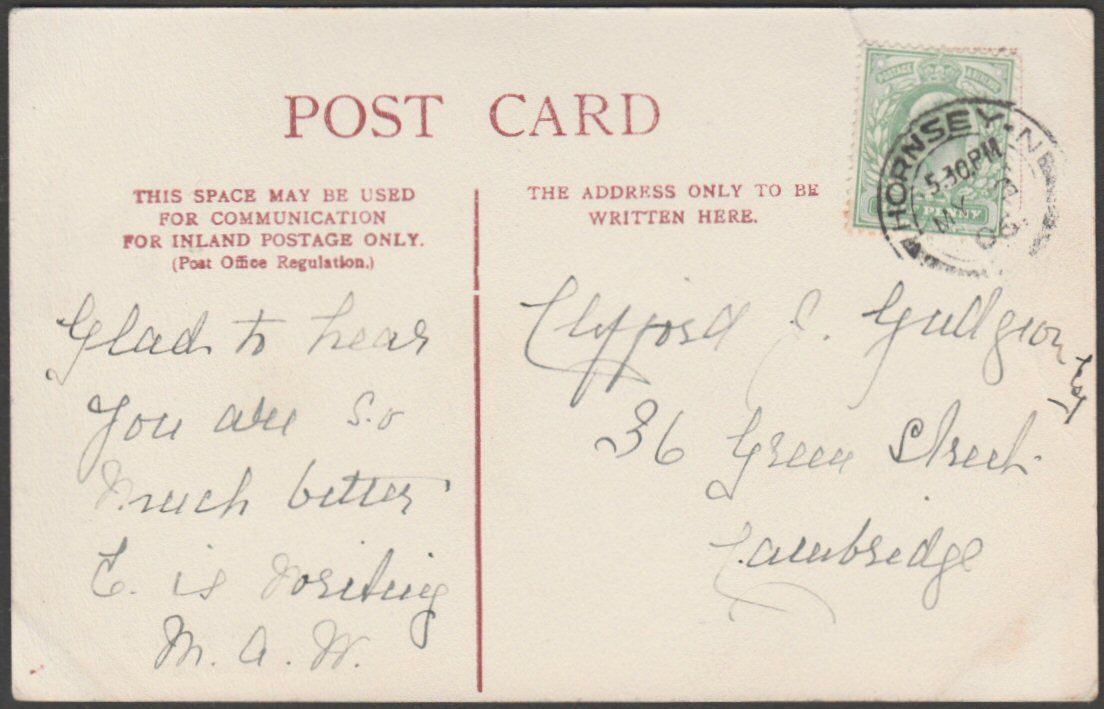 POST CARD
THIS SPACE MAY BE USED
FOR COMMUNICATION
FOR INLAND POSTAGE ONLY.
(Post Office Regulation.)
THE ADDRESS ONLY TO BE
WRITTEN HERE.
POSTAGE
PENNY
HORNSEY·N
5.30PM
MY
06
Glad to hear
You are so
Much better
E. is Writing
M. A. W.
Clifford J. Gudgeon
Esq
36 Green Street
Cambridge